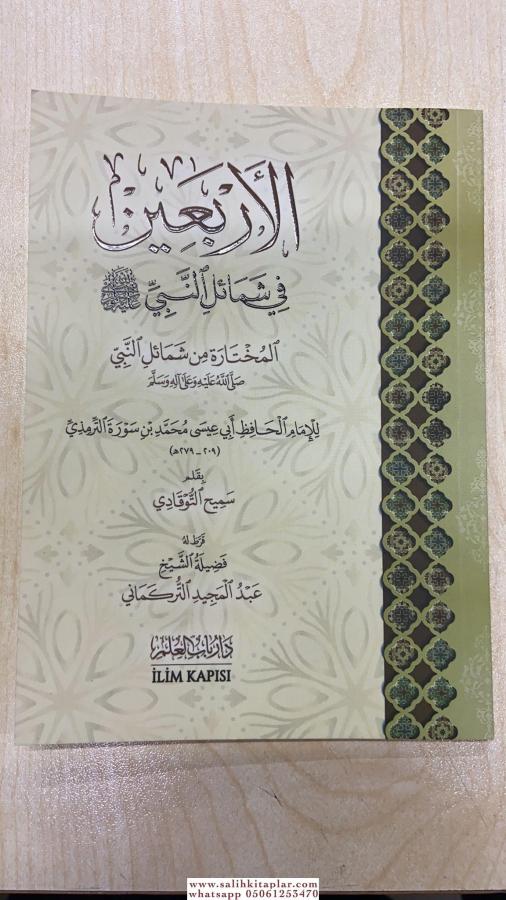 الأَرْبَعِين
فِي شَمَائِلِ النَّبِيِّ ﷺ
المُخْتَارَة مِنْ شَمَائِلِ النَّبِيّ
صَلَّى اللهُ عَلَيْهِ وَعَلَى آلِهِ وَسَلَّمَ
لِلإِمَامِ الحَافِظِ أَبِي عِيسَى مُحَمَّدِ بْنِ سَوْرَةَ التِّرْمِذِيّ
(٢٠٩ - ٢٧٩هـ)
بِقَلَم
سَمِيح التُّوقَادِي
قَرَّظَ لَهُ
فَضِيلَةُ الشَّيْخِ
عَبْدُ المَجِيدِ التُّرْكَمَانِي
دَارُ بَابِ العِلْمِ
İLİM KAPISI
www.salihkitaplar.com
whatsapp 05061253470